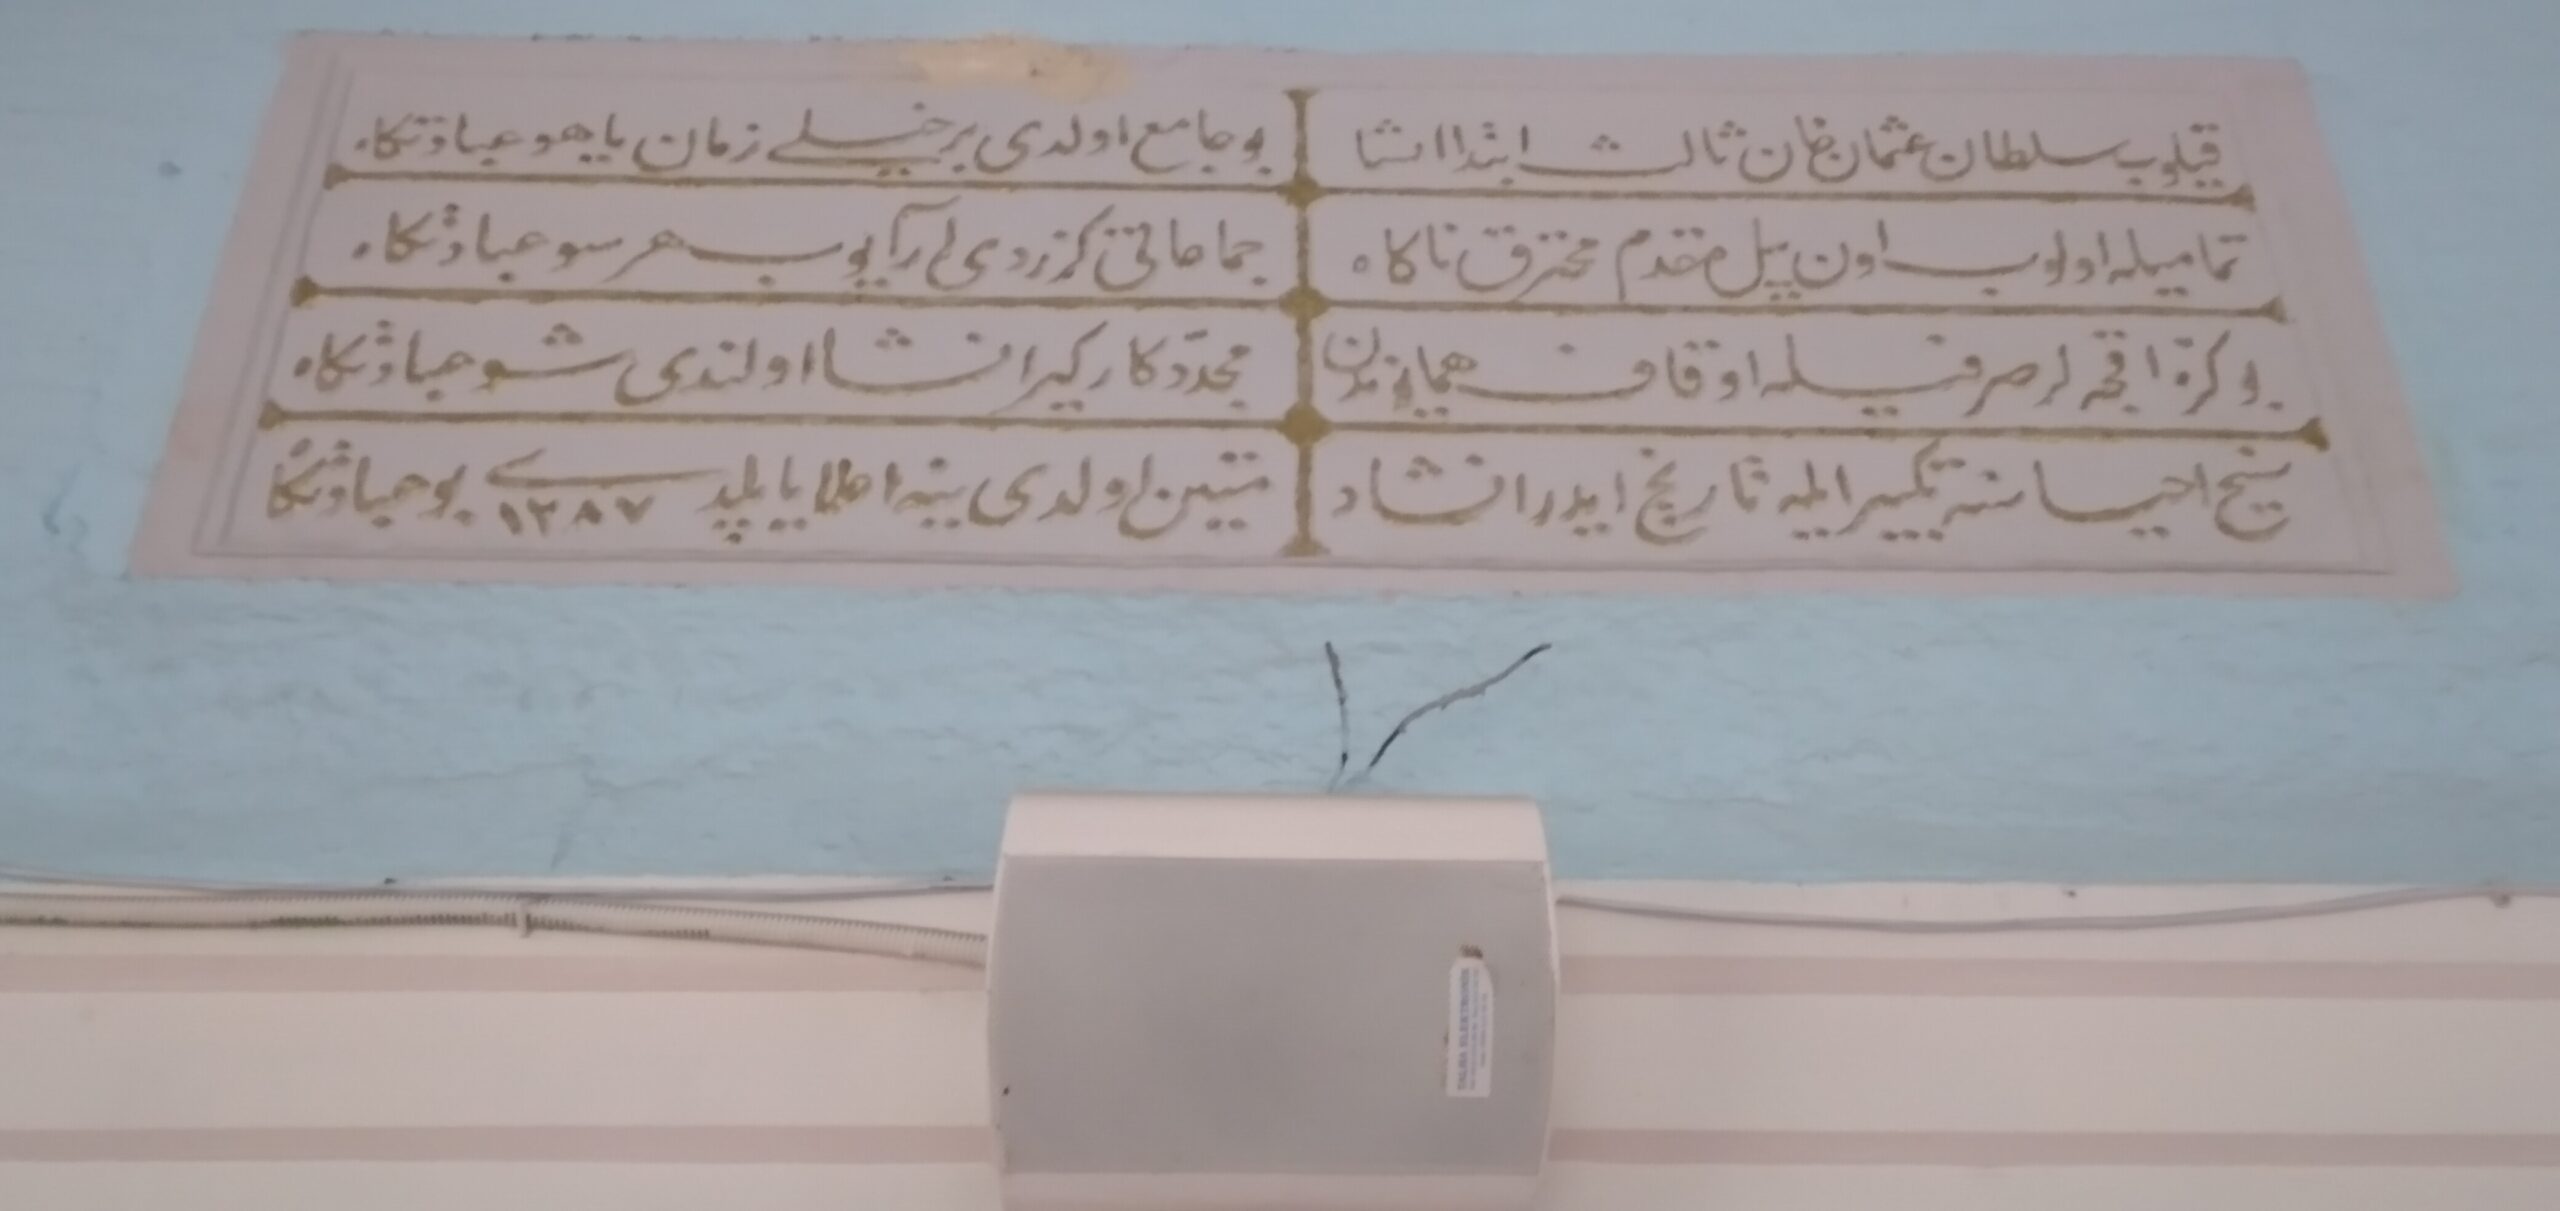 قیلوب سلطان عثمان خان ثالث ابتدا انشا
بو جامع اولدی بر خیلے زمان یا هو عبادتكاه
تمامیله اولوب اون ییل مقدم محترق ناكاه
جماعاتی كزردی آرایوب هر سو عبادتكاه
بو كره اقچه لر صرفیله اوقاف همایوندن
مجدد كاركیر انشا اولندی شو عبادتكاه
احیاسنه تكبیر ایله تاریخ ایدر انشاد
متین اولدی ینه اعلا یاپلدے بو عبادتكاه
١٢٨٧
TALHA ELEKTRONİK